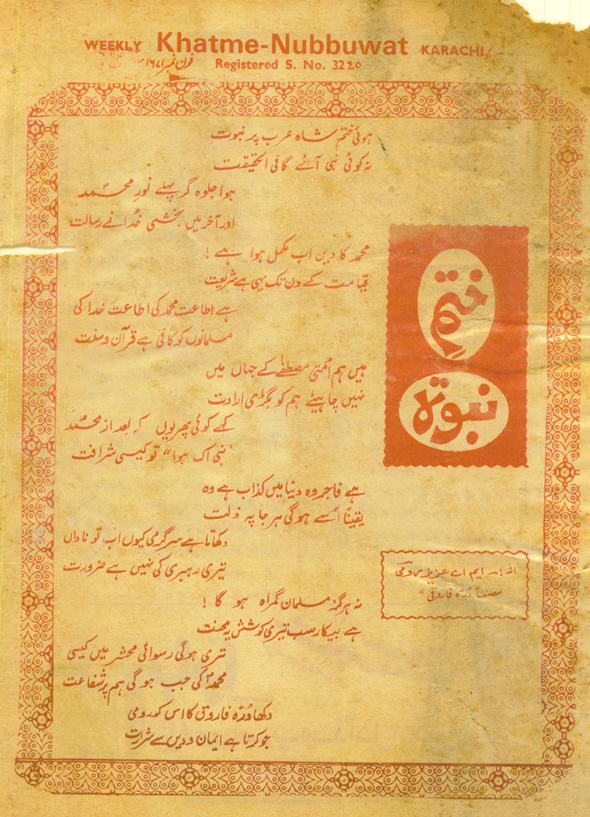 WEEKLY Khatme-Nubbuwat KARACHI
Registered S. No. 3220
فون نمبر ۷۱۶۷۱
ہوئی ختم شاہ عرب پر نبوت
نہ کوئی نبی آئے گا فی الحقیقت
ہوا جلوہ گر پہلے نورِ محمد
اور آخر میں بخشی خدا نے رسالت
محمد کا دین اب مکمل ہوا ہے !
قیامت کے دن تک یہی ہے شریعت
ہے اطاعت محمد کی اطاعت خدا کی
مسلمانوں کو کافی ہے قرآن و سنت
ہیں ہم اُمتی مصطفےٰ کے جہاں میں
نہیں چاہیئے ہم کو بگڑی ارادت
کہے کوئی پھر یوں کہ بعد از محمد
"نبی اک ہوا" تو کیسی شرافت
ہے فاجر وہ دنیا میں کذاب ہے وہ
یقیناً اُسے ہوگی ہر جا پہ ذلت
دکھاتا ہے سرگرمی کیوں اب تو ناداں
تیری رہبری کی نہیں ہے ضرورت
نہ ہرگز مسلمان گمراہ ہو گا !
ہے بیکار سب تیری کوشش یہ محنت
تری ہوگی رسوائی محشر میں کیسی
محمد کی جب ہو گی ہم پر شفاعت
دکھا دُرّہ فاروق کا اس کو رومی
جو کرتا ہے ایمان و دیں سے شرارت
ختمِ
نبوۃ
از :۔ ایم اے عزیز رومی
مصنف "دُرّہ فاروقی"